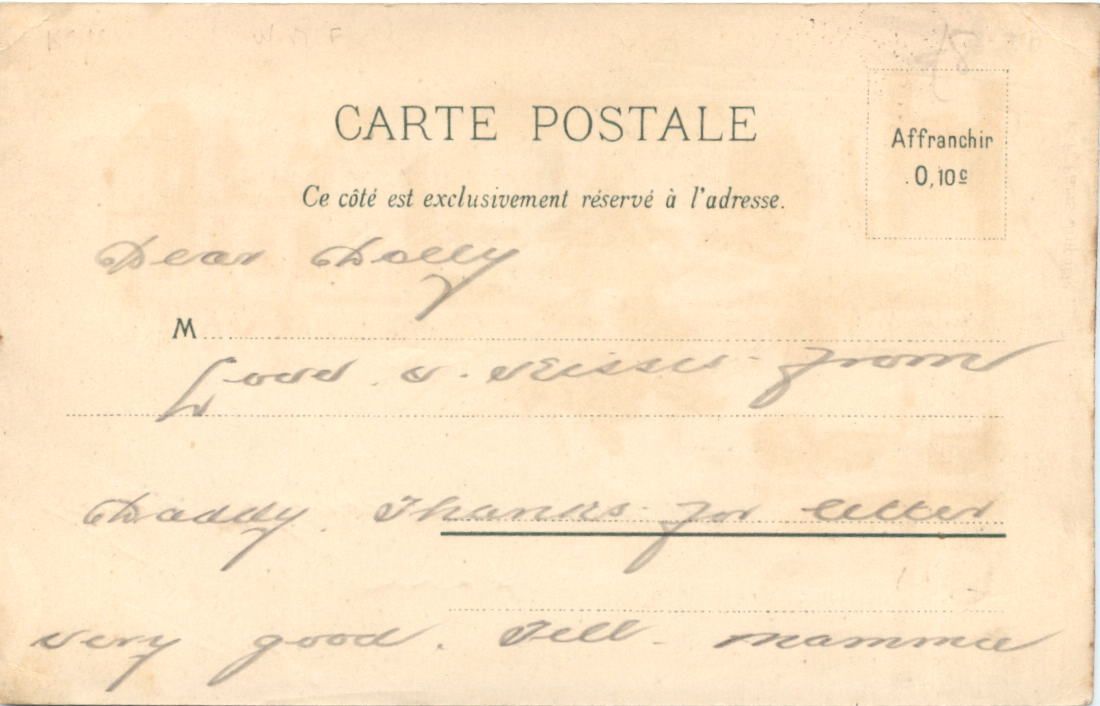 CARTE POSTALE
Affranchir
0,10c
Ce côté est exclusivement réservé à l'adresse.
Dear Dolly
M
Love & Kisses from
Daddy. Thanks for letter
very good. Tell mamma